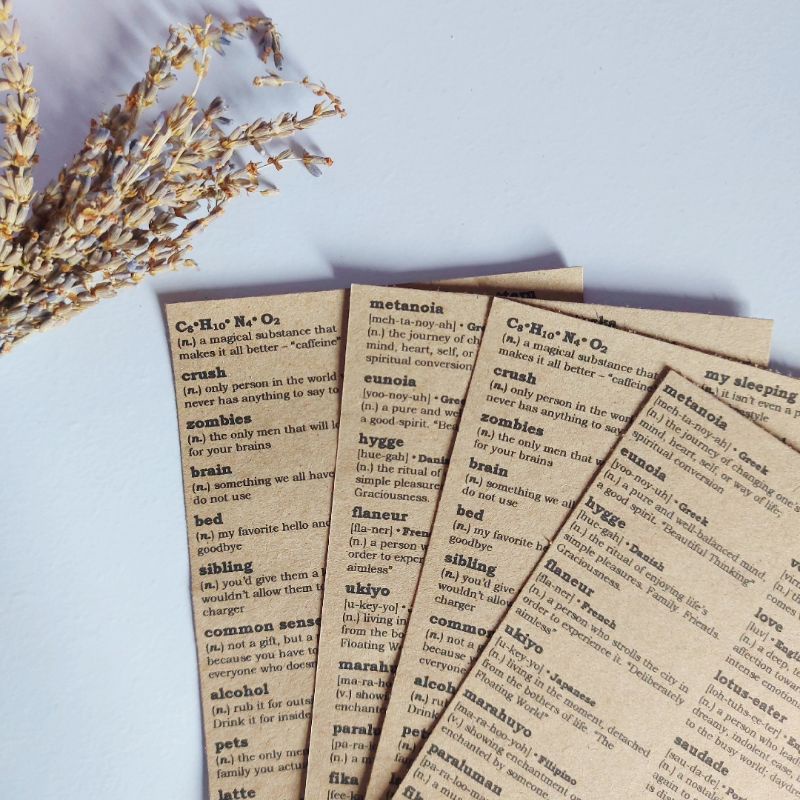 C8•H10• N4• O2
(n.) a magical substance that
makes it all better – "caffeine"
crush
(n.) only person in the world
never has anything to say to
zombies
(n.) the only men that will
for your brains
brain
(n.) something we all have
do not use
bed
(n.) my favorite hello and
goodbye
sibling
(n.) you'd give them a
wouldn't allow them
charger
common sense
(n.) not a gift, but a
because you have to
everyone who
alcohol
(n.) rub it for
Drink it for inside
pets
(n.) the only
family you
latte
metanoia
[meh-ta-noy-ah] •
(n.) the journey of
mind, heart, self, or
spiritual conversion
eunoia
[yoo-noy-uh] •
(n.) a pure and
a good spirit.
hygge
[hue-gah] •
(n.) the ritual of
simple pleasures
Graciousness.
flaneur
[fla-ner] •
(n.) a person
order to
aimless"
ukiyo
[u-key-yo] •
(n.) living in
from the
Floating
(v.)
fika
C8•H10• N4• O2
(n.) a magical substance that
makes it all better – "caffeine
crush
(n.) only person in the
never has anything to say
zombies
(n.) the only men that
for your brains
brain
(n.) something we all
do not use
bed
(n.) my favorite
goodbye
sibling
(n.) you'd give
wouldn't allow
charger
(n.) not a
because you
everyone
(n.)
Drink
my sleeping
(n.) it isn't even a
metanoia
[meh-ta-noy-ah] • Greek
(n.) the journey of changing one's
mind, heart, self, or way of life;
spiritual conversion
eunoia
[yoo-noy-uh] • Greek
(n.) a pure and well-balanced mind,
a good spirit. "Beautiful Thinking"
hygge
[hue-gah] • Danish
(n.) the ritual of enjoying life's
simple pleasures. Family. Friends.
Graciousness.
flaneur
[fla-ner] • French
(n.) a person who strolls the city in
order to experience it. "Deliberately
aimless"
ukiyo
[u-key-yo] • Japanese
(n.) living in the moment, detached
from the bothers of life. "The
Floating World"
marahuyo
[ma-ra-hoo-yoh] • Filipino
(v.) showing enchantment or
enchanted by someone,
paraluman
(n.) a
comes
love
[luv] •
(n.) a deep,
affection
intense
lotus-eater
[loh-tuhs-ee-ter] •
(n.) a person who
dreamy, indolent ease,
to the busy world;
saudade
[sau-da-de] •
(n.) a
again